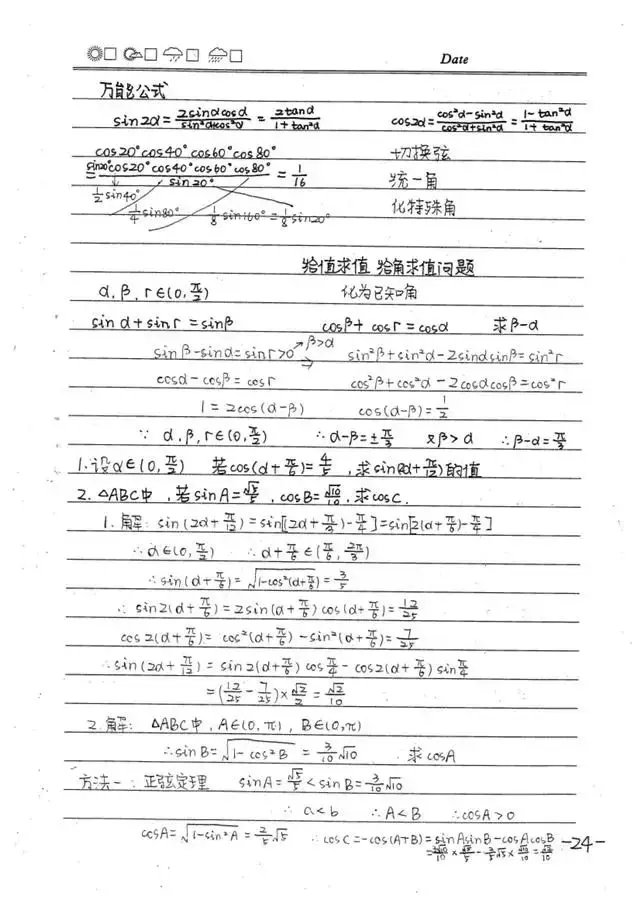 Date
万能公式
sin2α=2sinαcosα/sin²αcos²α=2tanα/1+tan²α cos2α=cos²α-sin²α/cos²α+sin²α=1-tan²α/1+tan²α
cos20°cos40°cos60°cos80° 切换弦
=sin20°cos20°cos40°cos60°cos80°/sin20°=1/16 统一角
1/2sin40° 化特殊角
1/4sin80° 1/8sin160°=1/8sin20°
给值求值 给角求值问题
α,β,r∈(0,π/2) 化为已知角
sinα+sinr=sinβ cosβ+cosr=cosα 求β-α
sinβ-sinα=sinr>0 ⇒β>α sin²β+sin²α-2sinαsinβ=sin²r
cosα-cosβ=cosr cos²β+cos²α-2cosαcosβ=cos²r
1=2cos(α-β) cos(α-β)=1/2
∵α,β,r∈(0,π/2) ∴α-β=±π/3 又β>α ∴β-α=π/3
1.设α∈(0,π/2) 若cos(α+π/6)=4/5,求sin(2α+π/12)的值
2.△ABC中,若sinA=√5/5,cosB=√10/10,求cosC.
1.解:sin(2α+π/12)=sin[(2α+π/3)-π/4]=sin[2(α+π/6)-π/4]
∵α∈(0,π/2) ∴α+π/6∈(π/6,2π/3)
∴sin(α+π/6)=√1-cos²(α+π/6)=3/5
∴sin2(α+π/6)=2sin(α+π/6)cos(α+π/6)=12/25
cos2(α+π/6)=cos²(α+π/6)-sin²(α+π/6)=7/25
∴sin(2α+π/12)=sin2(α+π/6)cosπ/4-cos2(α+π/6)sinπ/4
=(12/25-7/25)×√2/2=√2/10
2.解:△ABC中,A∈(0,π),B∈(0,π)
∴sinB=√1-cos²B=3/10√10.求cosA
方法一:正弦定理 sinA=√5/5<sinB=3/10√10
∴a<b ∴A<B ∴cosA>0
cosA=√1-sin²A=2/5√5 ∴cosC=-cos(A+B)=sinAsinB-cosAcosB
=3√10/10×√5/5-2/5√5×√10/10=√2/10
-24-